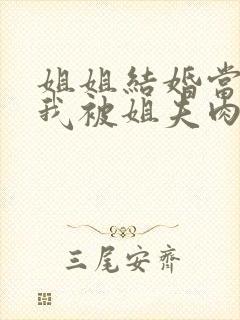 姐姐結婚當
我被姐夫肉
三尾安齊